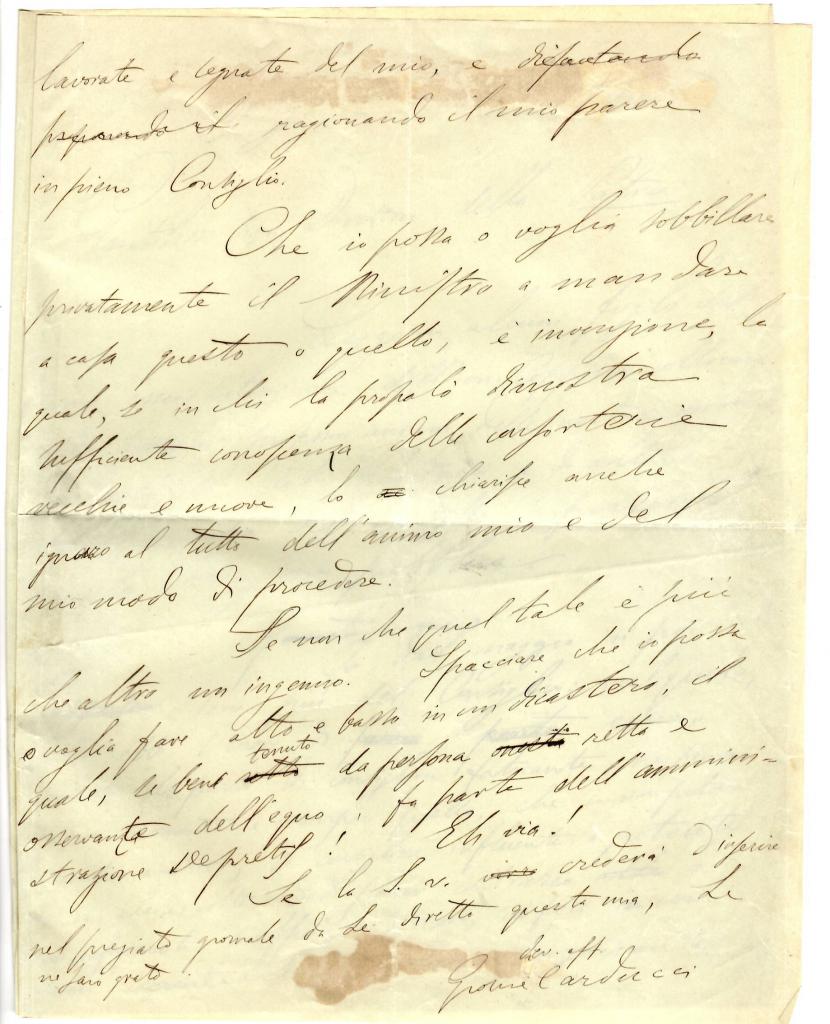 lavorate e segnate del mio, e disputando
proponendo il ragionando il mio parere
in pieno Consiglio.
Che io possa o voglia sobbillare
privatamente il Ministro a mandare
a casa questo o quello, è invenzione, la
quale, se in chi la propalò dimostra
sufficiente conoscenza delle consorterie
vecchie e nuove, lo chiarisce anche
ignaro al tutto dell'animo mio e del
mio modo di procedere.
Se non che quel tale è più
che altro un ingenuo. Spacciare che io possa
o voglia fare alto e basso in un dicastero, il
quale, se bene tenuto da persona retta e
osservante dell'equo, fa parte dell'ammini-
strazione Depretis! Eh via!
Se la S. v. crederà d'inserire
nel pregiato giornale da Lei diretto questa mia, Le
ne sarò grato.
dev. aff.
Giosue Carducci